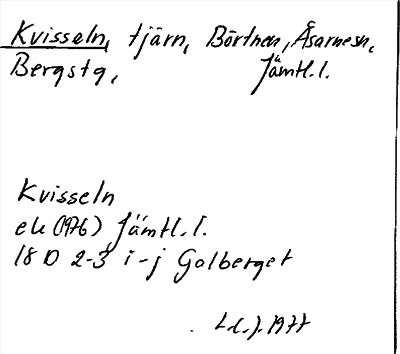 Kvisseln, tjärn, Börtnen, Åsarnesn,
Bergstg, Jämtl.l.
Kvisseln
ek (1976) Jämtl.l.
18 D 2-3 i-j Galberget
1977